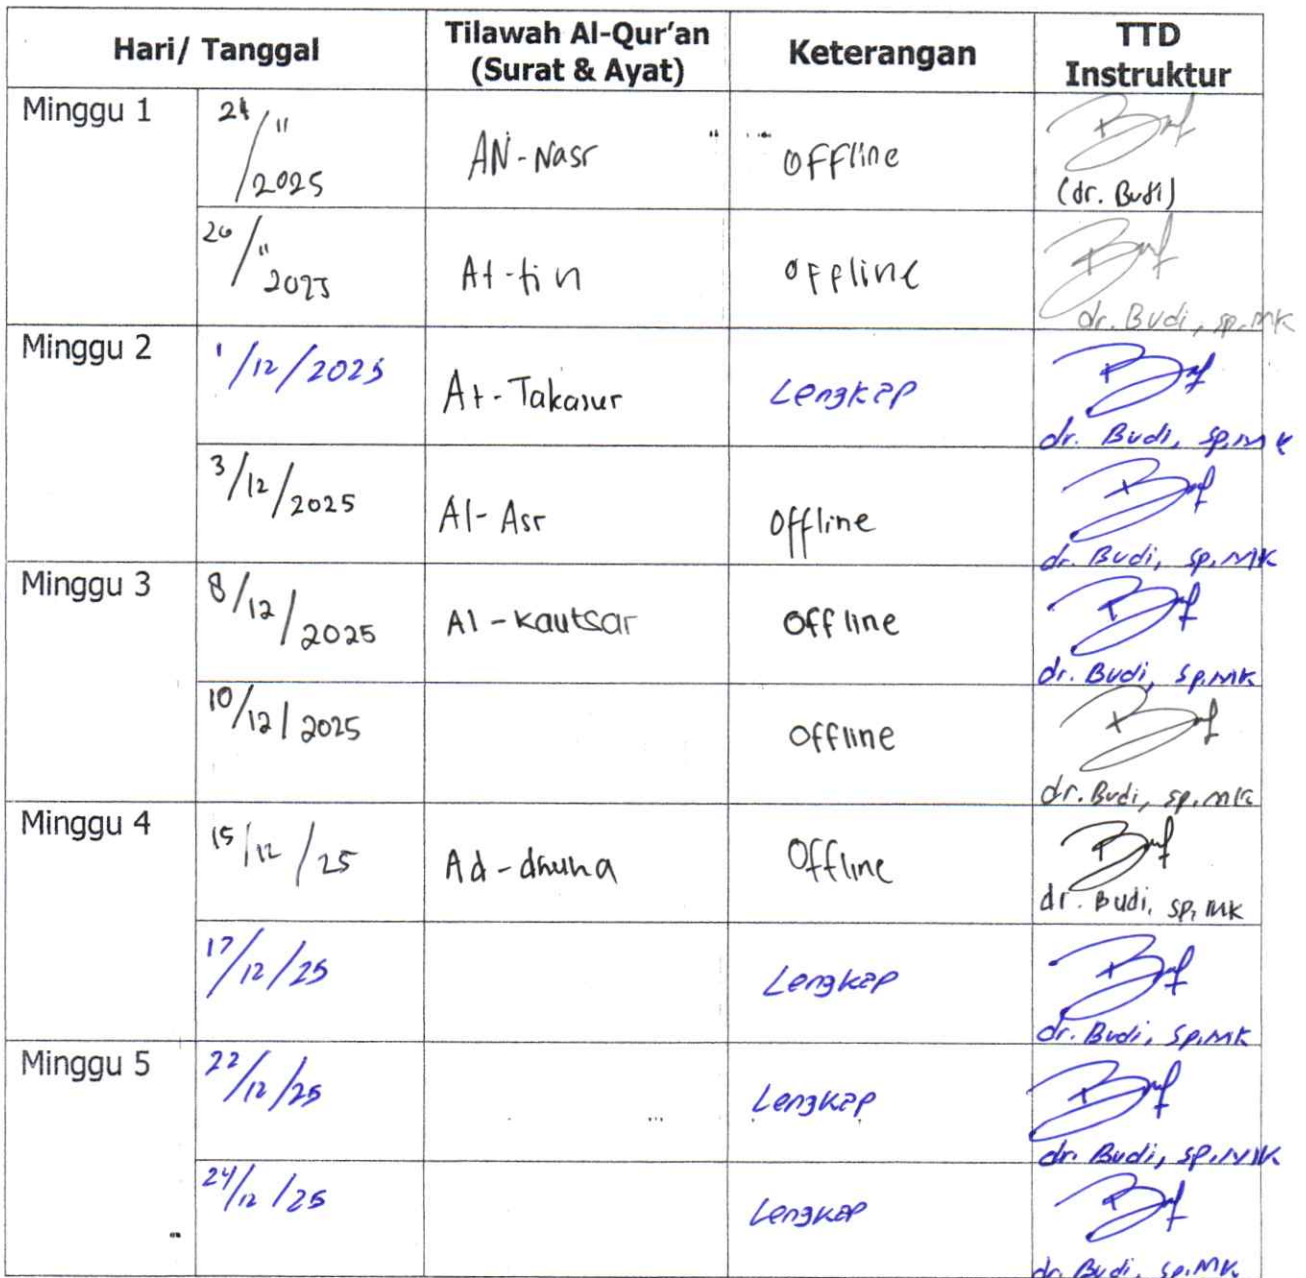 Hari/ Tanggal
Tilawah Al-Qur'an
(Surat & Ayat)
Keterangan
TTD
Instruktur
Minggu 1
24/11/2025
AN-Nasr
Offline
(dr. Budi)
26/11/2025
At-tin
Offline
dr. Budi, Sp.MK
Minggu 2
1/12/2025
At-Takasur
Lengkap
dr. Budi, Sp.MK
3/12/2025
Al-Asr
Offline
dr. Budi, Sp.MK
Minggu 3
8/12/2025
Al-Kautsar
Offline
dr. Budi, Sp.MK
10/12/2025
Offline
dr. Budi, Sp.MK
Minggu 4
15/12/25
Ad-dhuha
Offline
dr. Budi, Sp.MK
17/12/25
Lengkap
dr. Budi, Sp.MK
Minggu 5
22/12/25
Lengkap
dr. Budi, Sp.MK
24/12/25
Lengkap
dr. Budi, Sp.MK